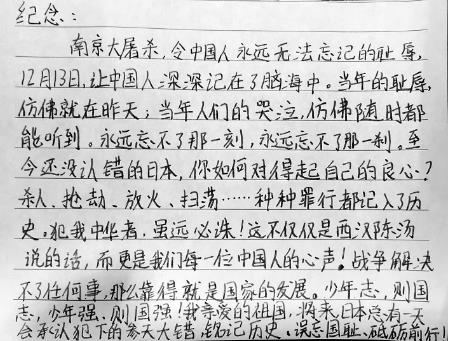 纪念：
南京大屠杀，令中国人永远无法忘记的耻辱，
12月13日，让中国人深深记在了脑海中。当年的耻辱，
仿佛就在昨天；当年人们的哭泣，仿佛随时都
能听到。永远忘不了那一刻，永远忘不了那一刹。至
今还没认错的日本，你如何对得起自己的良心？
杀人、抢劫、放火、扫荡……种种罪行都记入了历
史。犯我中华者，虽远必诛！这不仅仅是西汉陈汤
说的话，而更是我们每一位中国人的心声！战争解决
不了任何事，那么靠得就是国家的发展。少年志，则国
志，少年强、则国强！我亲爱的祖国，将来，日本总有一天
会承认犯下的滔天大错，铭记历史、误忘国耻、砥砺前行！